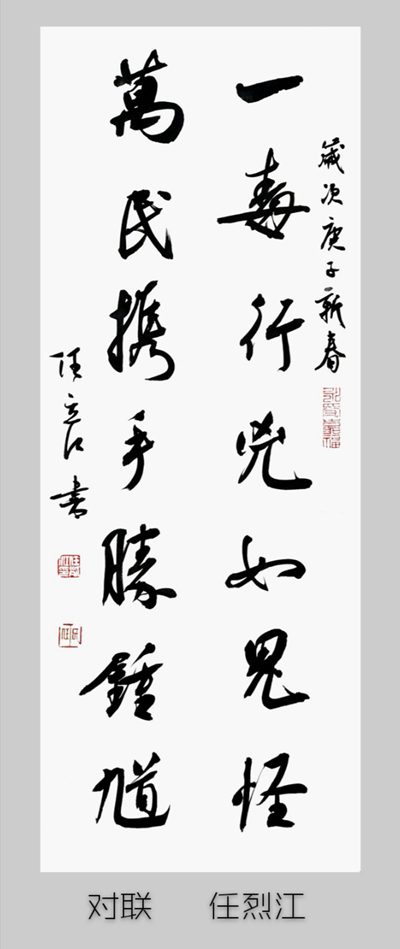 歲次庚子新春
一毒行兇如鬼怪
萬民携手勝鍾馗
任烈江書
对联 任烈江